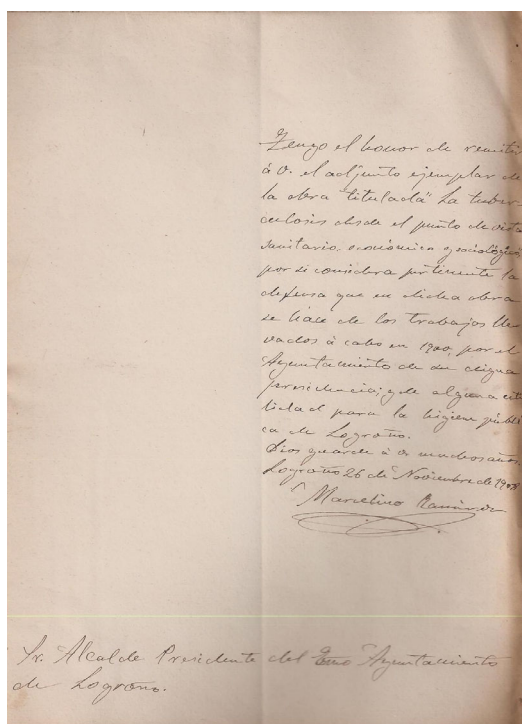 Tengo el honor de remitir
á V. el adjunto ejemplar de
la obra titulada "La tuber-
culosis desde el punto de vista
sanitario, económico y sociológico
por si considera pertinente la
defensa que en dicha obra
se hace de los trabajos lle-
vados á cabo en 1900, por el
Ayuntamiento de su digna
presidencia, y de alguna uti
lidad para la higiene públi
ca de Logroño.
Dios guarde á V. muchos años.
Logroño 26 de Noviembre de
Marcelino Ramírez
Sr. Alcalde Presidente del Excmo Ayuntamiento
de Logroño.